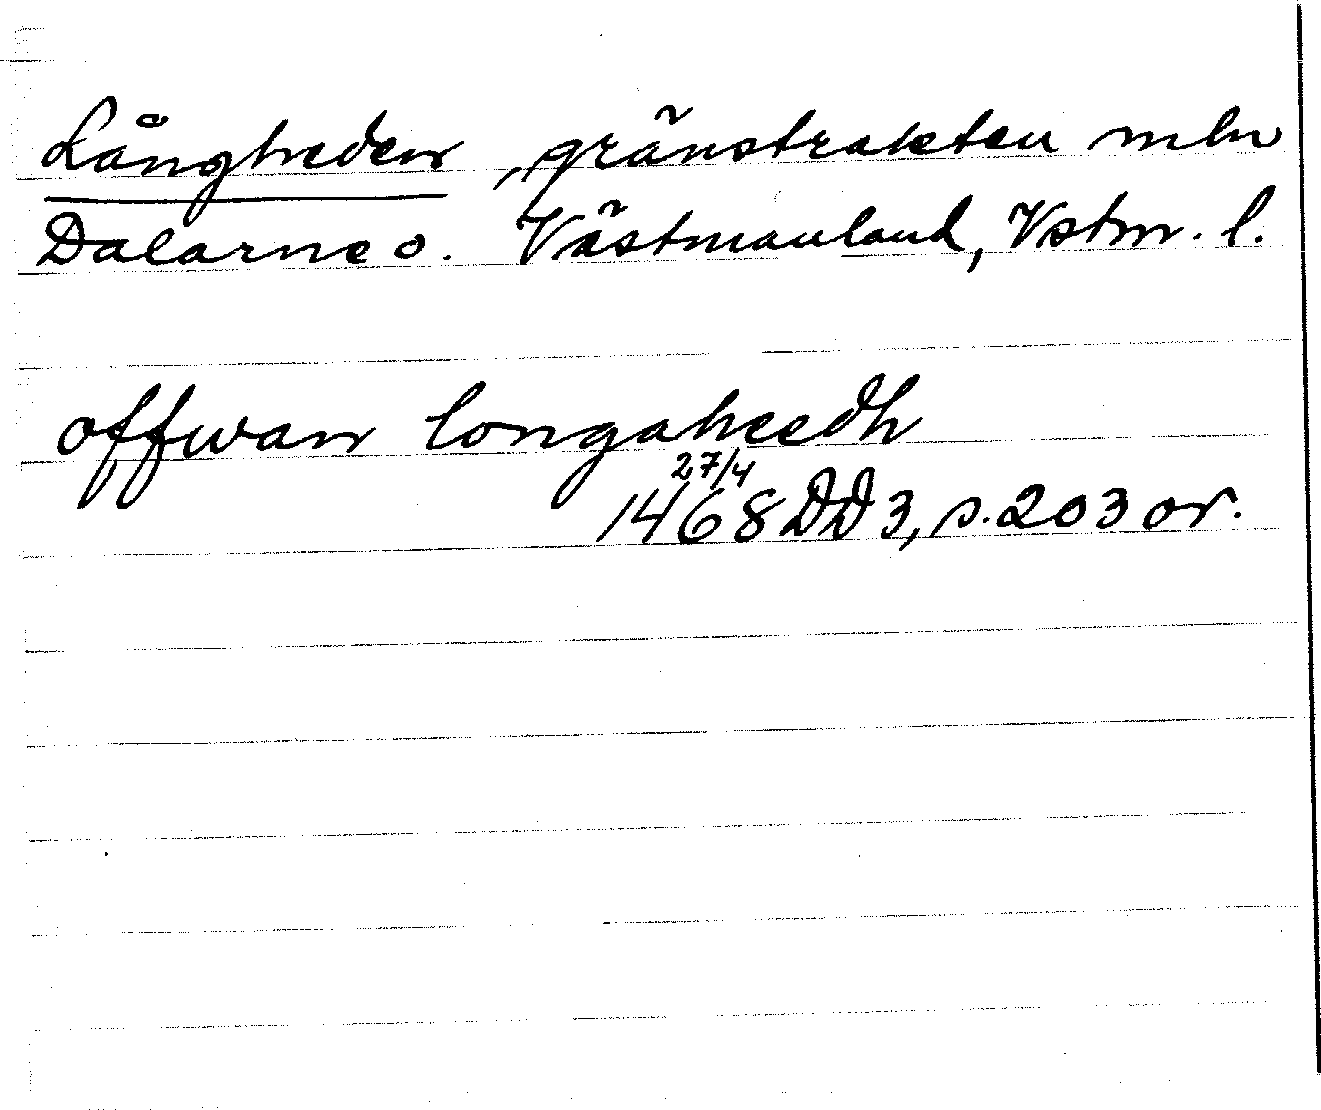 Långheden, gränstrakten mln
Dalarne o. Västmanland, Vstm. l.
offwan longaheedh
27/4
1468 DD 3, s. 203 or.